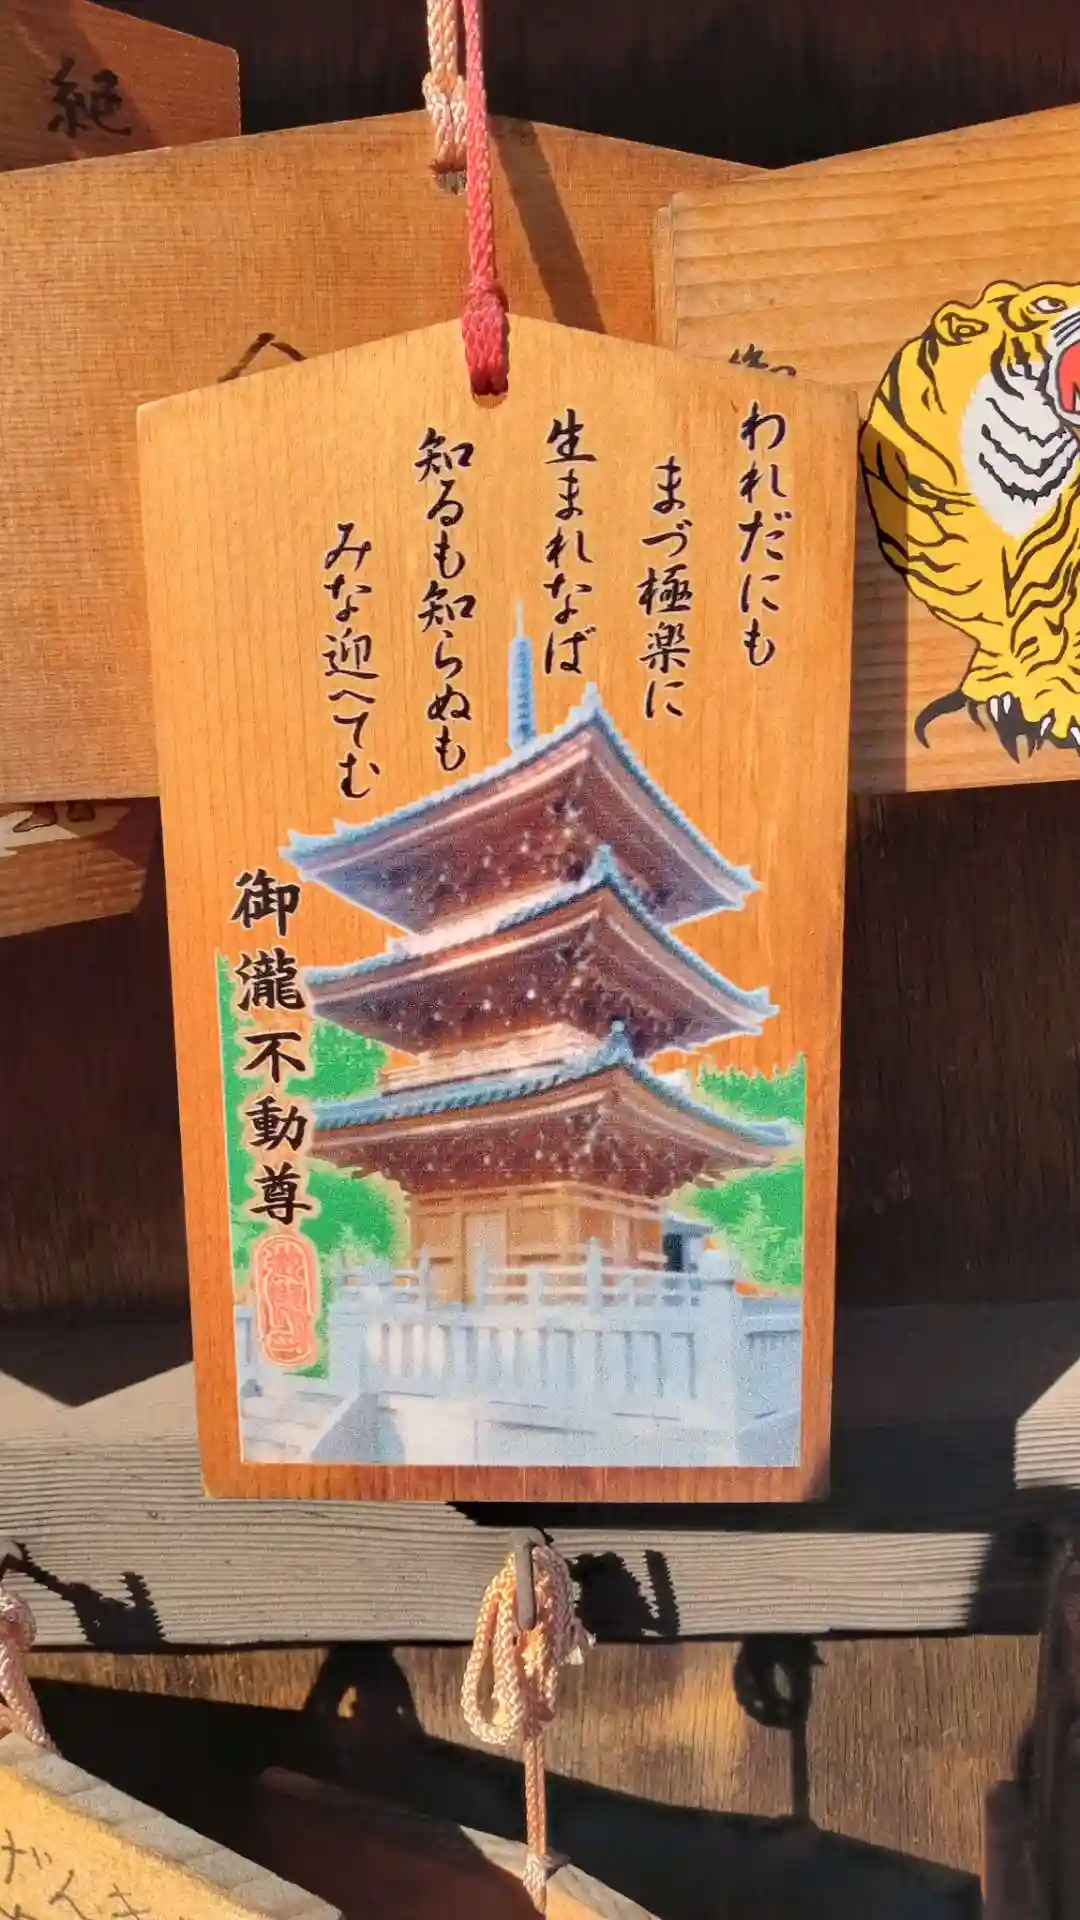 われだにも
まづ極楽に
生まれなば
知るも知らぬも
みな迎へてむ
御瀧不動尊
絶